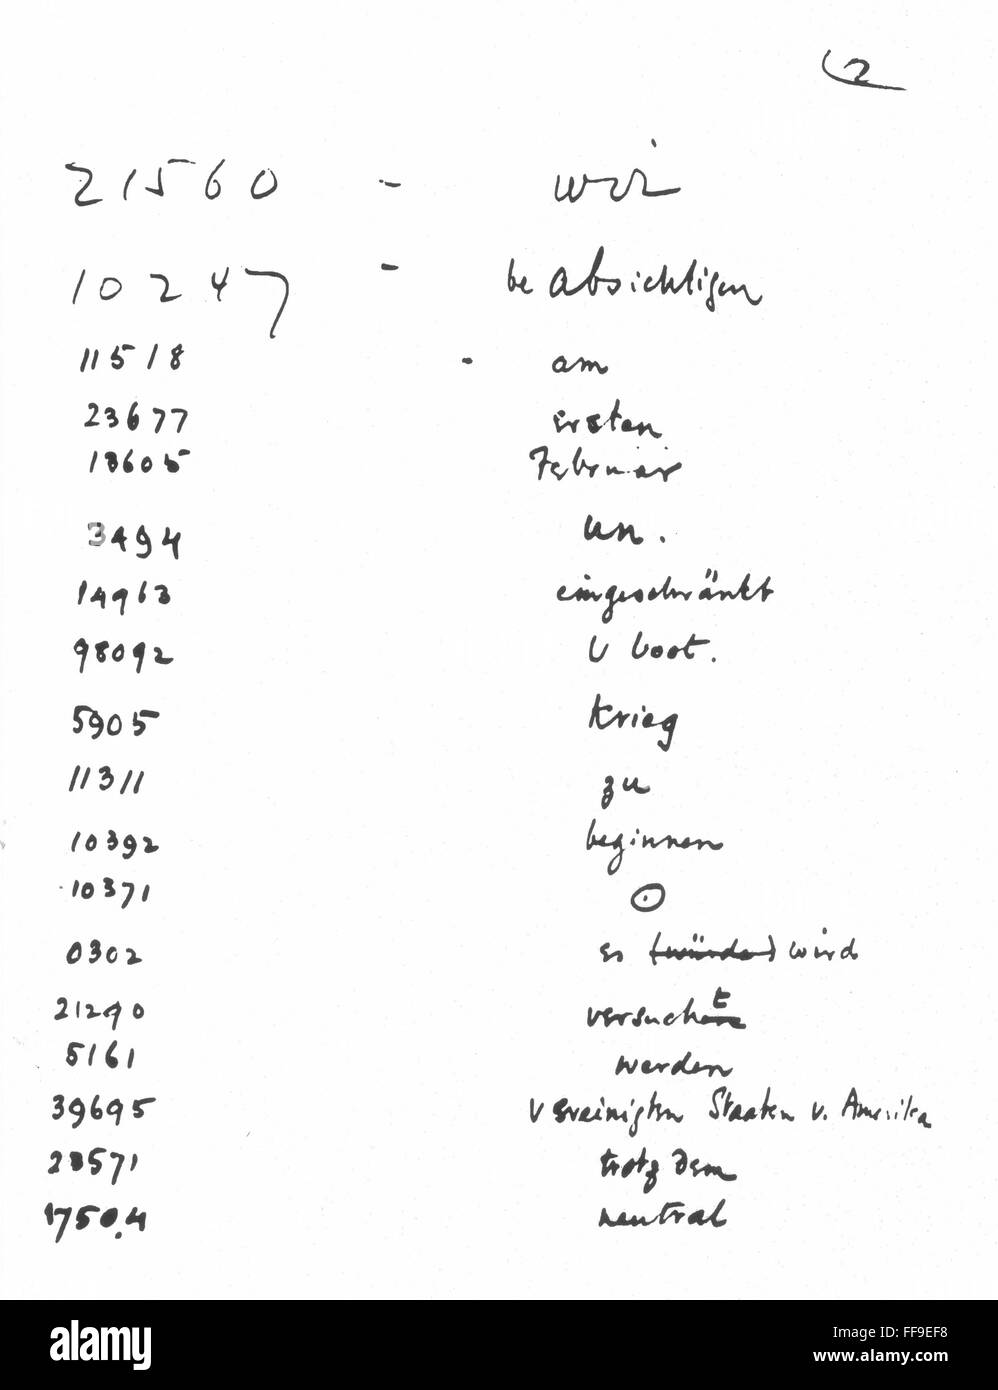 2
21560 - wir
10247 - beabsichtigen
11518 - am
23677 ersten
13605 Februar
3494 un.
14963 eingeschränkt
98092 U boot.
5905 krieg
11311 zu
10392 beginnen
10371 ⊙
0302 es (würde) wird
21290 versuchen t
5161 werden
39695 vereinigten Staaten v. Amerika
23571 trotzdem
17504 neutral
alamy
Image ID: FF9EF8
www.alamy.com